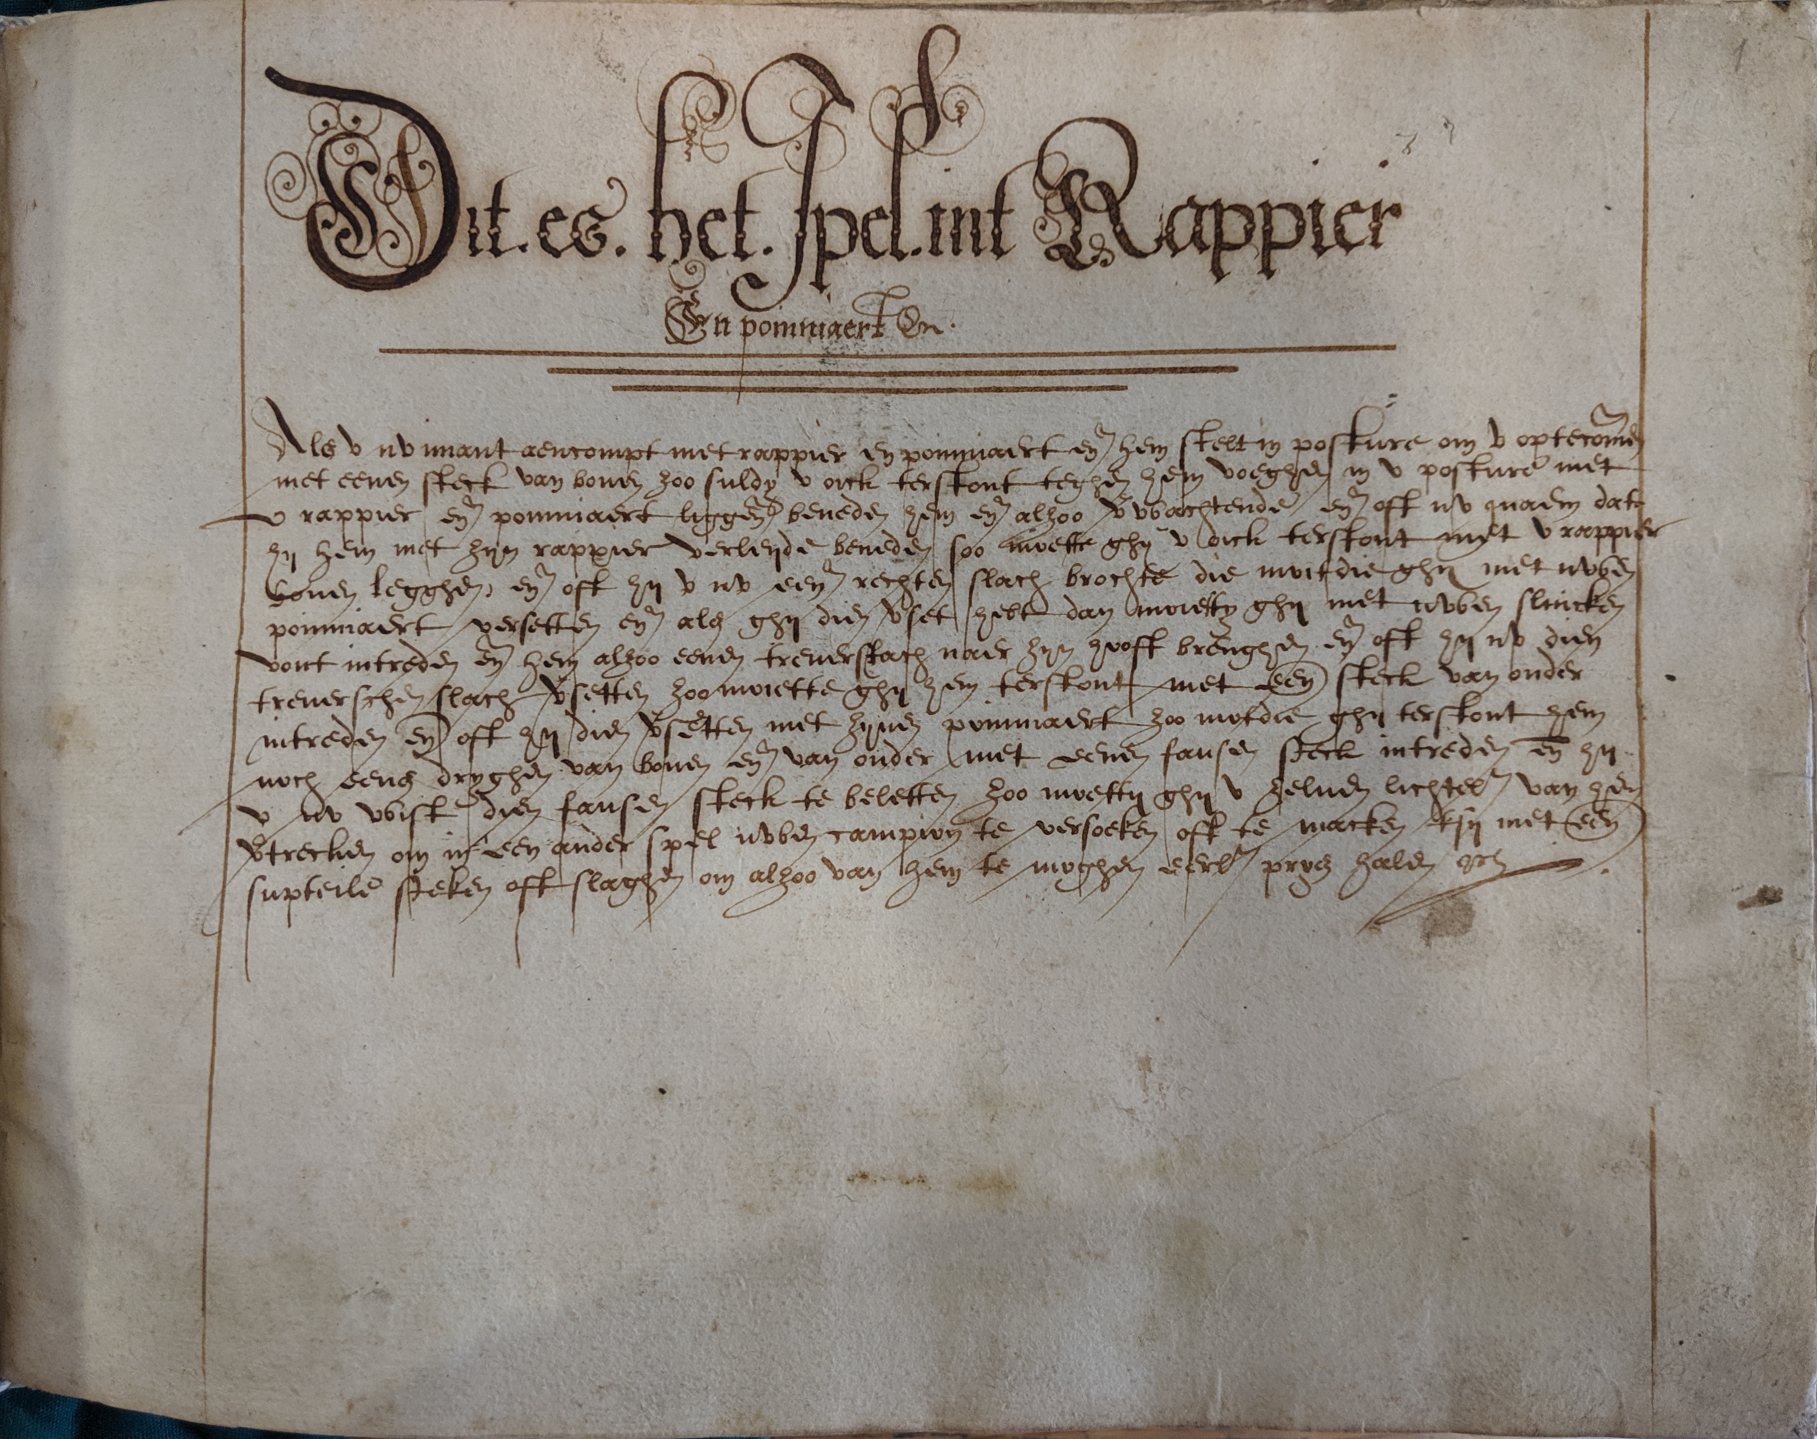 1
Dit. es. het. spel. int Rappier
En pommaert En.
Als v nv imant aencompt met rappier en pommaert en hem stelt in posture om v optecomen
met eenen steck van bouen zoo suldy v oick terstont teghen hem voeghen in v posture met
v rappier en pommaert liggen beneden hem en alzoo vwachtende en oft nv quaem dat
hij hem met zijn rappier verleyde beneden soo moette ghij v oick terstont met v rappier
bouen legghen, en oft hij v nv een rechten slach brochte die moitdie ghij met uwen
pommaert versetten en als ghij dien vset hebt dan moetty ghij met uwen slincken
voet intreden en hem alzoo eenen treuerslach naer zijn hooft brenghen en oft hij nv dien
treuerschen slach vsetten zoo moette ghij hem terstont met een steck van onder
intreden en oft hij dien vsetten met zijnen pommaert zoo motdie ghij terstont hem
noch eens dryghen van bouen en van onder met eenen fausen steck intreden en hij
v nv wist dien fausen steck te beletten zoo moettij ghij v seluen lichtel van hem
vtrecken om in een ander spel uwen campion te versoeken oft te macken ksij met een
supteile steken oft slaghen om alzoo van hem te moghen eerl prys halen